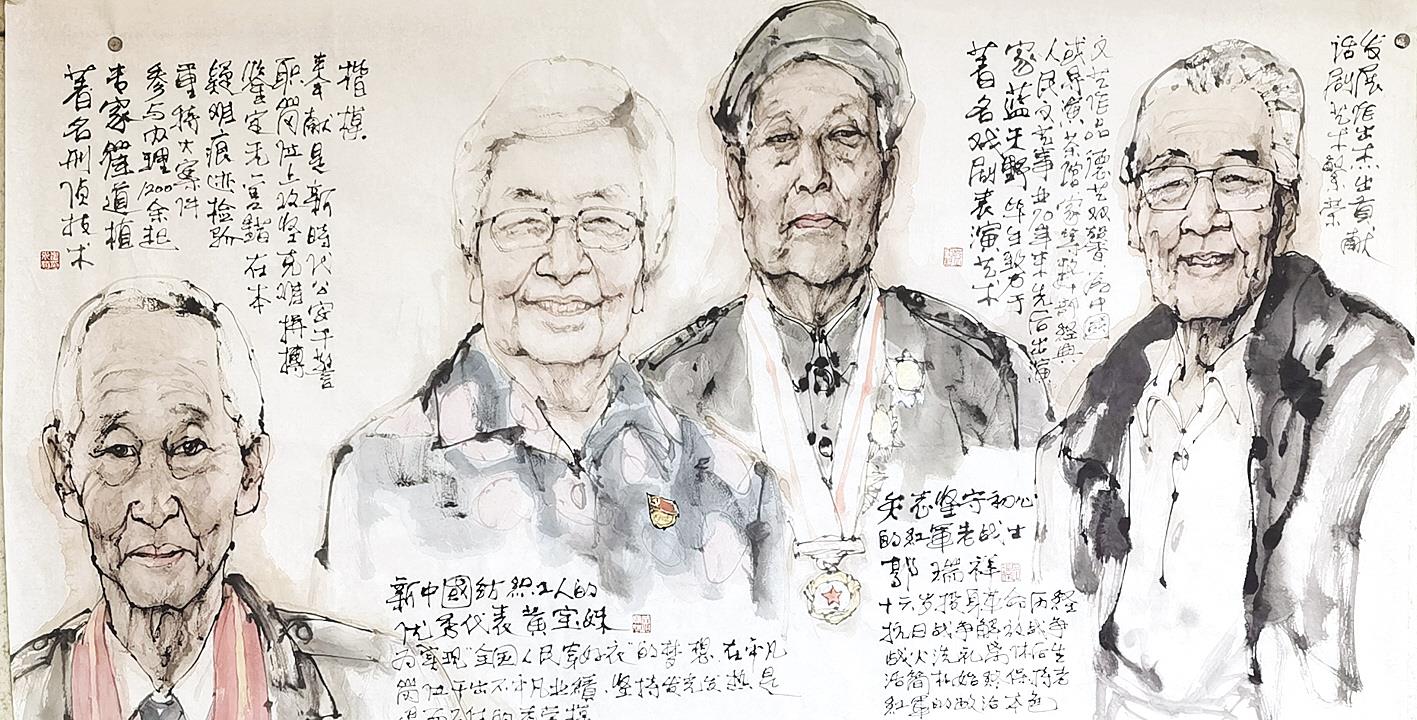 著名刑侦技术
专家崔道植
参与办理1200余起
重特大案件
疑难痕迹检验
鉴定无一差错 在本
职岗位上攻坚克难 拼搏
奉献是新时代公安干警
楷模
新中國纺织工人的
优秀代表黄宝妹
为实现"全国人民穿好衣"的梦想 在平凡
岗位干出不平凡业績 坚持发光发热 是
著名戏剧表演艺术
家蓝天野 毕生致力于
人民文艺事业70年来 先后出演
或导演茶馆 家等数部经典
文艺作品 德艺双馨 为中國
话剧艺术繁荣
发展作出杰出贡献
矢志坚守初心
的紅軍老战士
郭瑞祥
十六岁投身革命 历经
抗日战争解放战争
战火洗礼 离休后生
活簡朴 始终保持老
紅軍的政治本色